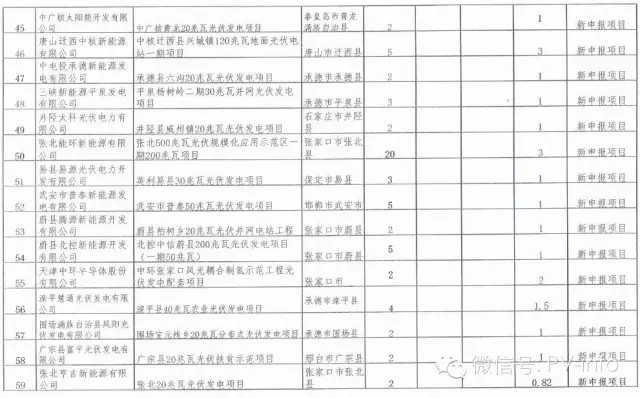 45 中广核太阳能开发有限公司 中广核青龙20兆瓦光伏发电项目 秦皇岛市青龙满族自治县 2 1 新申报项目
46 唐山迁西中核新能源有限公司 中核迁西县兴城镇120兆瓦地面光伏电站一期项目 唐山市迁西县 5 3 新申报项目
47 中电投承德新能源发电有限公司 承德县六沟20兆瓦光伏发电项目 承德市承德县 2 1 新申报项目
48 三峡新能源平泉发电有限公司 平泉杨树岭二期30兆瓦并网光伏发电项目 承德市平泉县 3 1 新申报项目
49 井陉太科光伏电力有限公司 井陉县威州镇20兆瓦光伏发电项目 石家庄市井陉县 2 1 新申报项目
50 张北能环新能源有限公司 张北500兆瓦光伏规模化应用示范区一期200兆瓦项目 张家口市张北县 20 3 新申报项目
51 易县易源光伏电力开发有限公司 英利易县30兆瓦光伏发电项目 保定市易县 3 1 新申报项目
52 武安市普泰新能源发电有限公司 武安市普泰50兆瓦光伏发电项目 邯郸市武安市 5 1 新申报项目
53 蔚县腾源新能源开发有限公司 蔚县柏树乡20兆瓦光伏并网电站工程 张家口市蔚县 2 1 新申报项目
54 蔚县北控新能源开发有限公司 北控中信蔚县200兆瓦光伏发电项目（一期50兆瓦） 张家口市蔚县 5 1 新申报项目
55 天津中环半导体股份有限公司 中环张家口风光耦合制氢示范工程光伏发电配套项目 张家口市 2 2 新申报项目
56 滦平慧通光伏发电有限公司 滦平县40兆瓦农业光伏发电项目 承德市滦平县 4 1.5 新申报项目
57 围场满族自治县凤阳光伏发电有限公司 围场宝元栈乡20兆瓦分布式光伏发电项目 承德市围场县 2 1 新申报项目
58 广宗县富平光伏发电有限公司 广宗县20兆瓦光伏扶贫示范项目 邢台市广宗县 2 1 新申报项目
59 张北亨吉新能源有限公司 张北20兆瓦光伏发电项目 张家口市张北县 2 0.82 新申报项目
微信号: PV-info